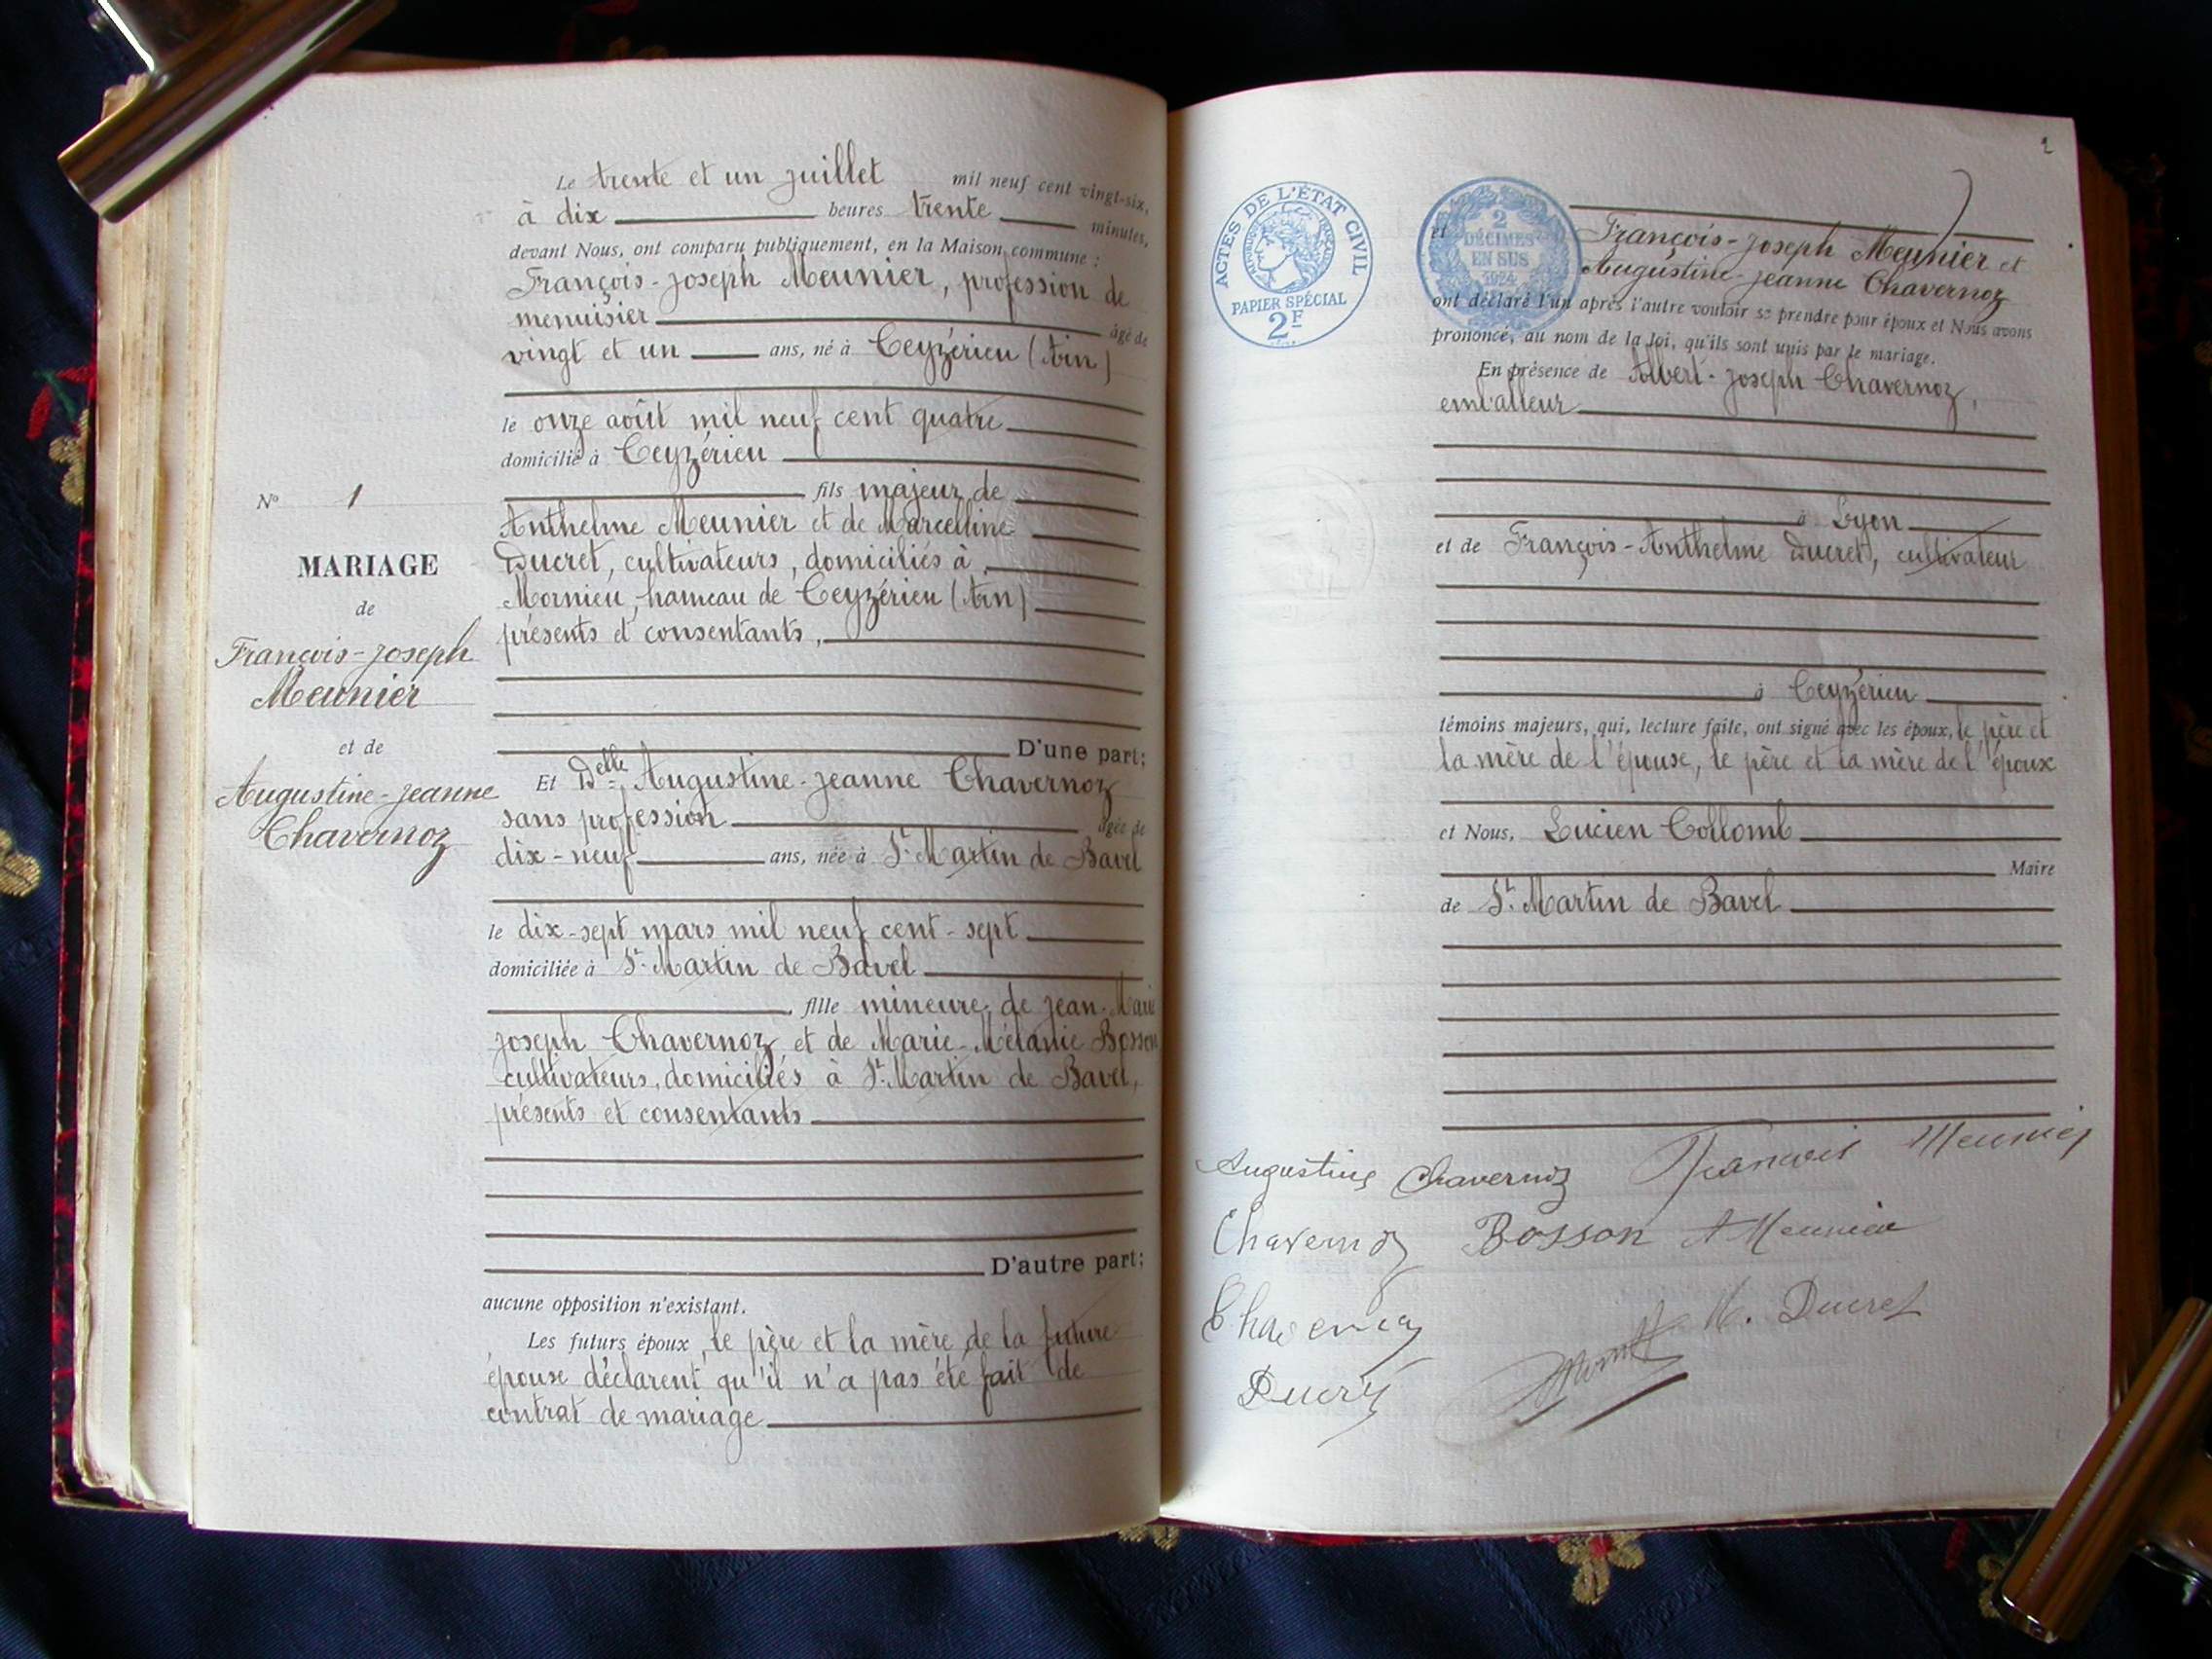 Le trente et un juillet mil neuf cent vingt-six,
à dix heures trente minutes,
devant Nous, ont comparu publiquement, en la Maison commune :
François-Joseph Meunier, profession de
menuisier âgé de
vingt et un ans, né à Ceyzérieu (Ain)
le onze août mil neuf cent quatre
domicilié à Ceyzérieu
fils majeur de
Anthelme Meunier et de Marcelline
Ducret, cultivateurs, domiciliés à
Mornieu, hameau de Ceyzérieu (Ain)
présents et consentants,
D'une part;
Et Delle Augustine-Jeanne Chavernoz
sans profession âgée de
dix-neuf ans, née à St Martin de Bavel
le dix-sept mars mil neuf cent-sept
domiciliée à St Martin de Bavel
fille mineure de Jean-Marie
Joseph Chavernoz et de Marie-Mélanie Bosson
cultivateurs, domiciliés à St Martin de Bavel,
présents et consentants
D'autre part;
aucune opposition n'existant.
Les futurs époux, le père et la mère de la future
épouse déclarent qu'il n'a pas été fait de
contrat de mariage
No 1
MARIAGE
de
François-Joseph
Meunier
et de
Augustine-Jeanne
Chavernoz
2
ACTES DE L'ÉTAT CIVIL
PAPIER SPÉCIAL
2F
2
DÉCIMES
EN SUS
1924
et François-Joseph Meunier et
Augustine-Jeanne Chavernoz
ont déclaré l'un après l'autre vouloir se prendre pour époux et Nous avons
prononcé, au nom de la loi, qu'ils sont unis par le mariage.
En présence de Albert-Joseph Chavernoz,
emballeur
à Lyon
et de François-Anthelme Ducret, cultivateur
à Ceyzérieu
témoins majeurs, qui, lecture faite, ont signé avec les époux, le père et
la mère de l'épouse, le père et la mère de l'époux
et Nous, Lucien Collomb
Maire
de St Martin de Bavel
Augustine Chavernoz François Meunier
Chavernoz Bosson A Meunier
Chavernoz M. Ducret
Ducret